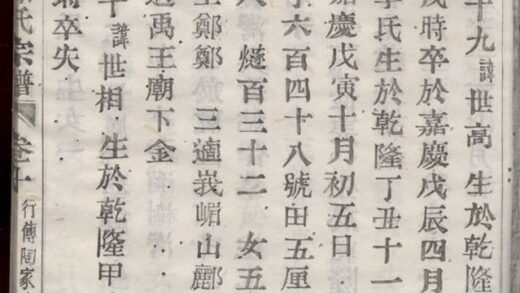 十九諱世高生於乾隆
戌時卒於嘉慶戊辰四月
李氏生於乾隆丁丑十一
嘉慶戊寅十月初五日
字六百四十八號田五厘
八燧百三十二女五
主鄭鄭三適峩嵋山酈
適禹王廟下金
十諱世相生於乾隆甲
時卒失
氏宗譜卷十行傳陶家